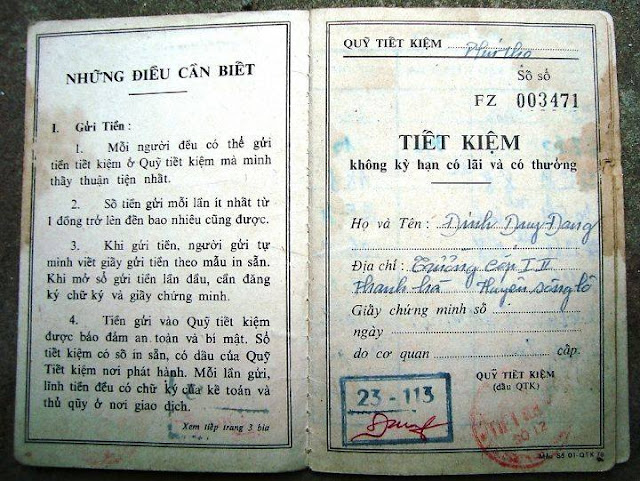 NHỮNG ĐIỀU CẦN BIẾT
I. Gửi Tiền :
1. Mỗi người đều có thể gửi
tiền tiết kiệm ở Quỹ tiết kiệm mà mình
thấy thuận tiện nhất.
2. Số tiền gửi mỗi lần ít nhất từ
1 đồng trở lên đến bao nhiêu cũng được.
3. Khi gửi tiền, người gửi tự
mình viết giấy gửi tiền theo mẫu in sẵn.
Khi mở sổ gửi tiền lần đầu, cần đăng
ký chữ ký và giấy chứng minh.
4. Tiền gửi vào Quỹ tiết kiệm
được bảo đảm an toàn và bí mật. Sổ
tiết kiệm có số in sẵn, có dấu của Quỹ
Tiết kiệm nơi phát hành. Mỗi lần gửi,
lĩnh tiền đều có chữ ký của kế toán và
thủ quỹ ở nơi giao dịch.
Xem tiếp trang 3 bìa
QUỸ TIẾT KIỆM
Sổ số
FZ 003471
TIẾT KIỆM
không kỳ hạn có lãi và có thưởng
Họ và Tên : Đinh Duy Dang
Địa chỉ : Trường Cấp I II
Thanh hà Huyện sông lô
Giấy chứng minh số
ngày
do cơ quan cấp.
QUỸ TIẾT KIỆM
(dấu QTK)
23 - 113
Mẫu Số 01-QTK